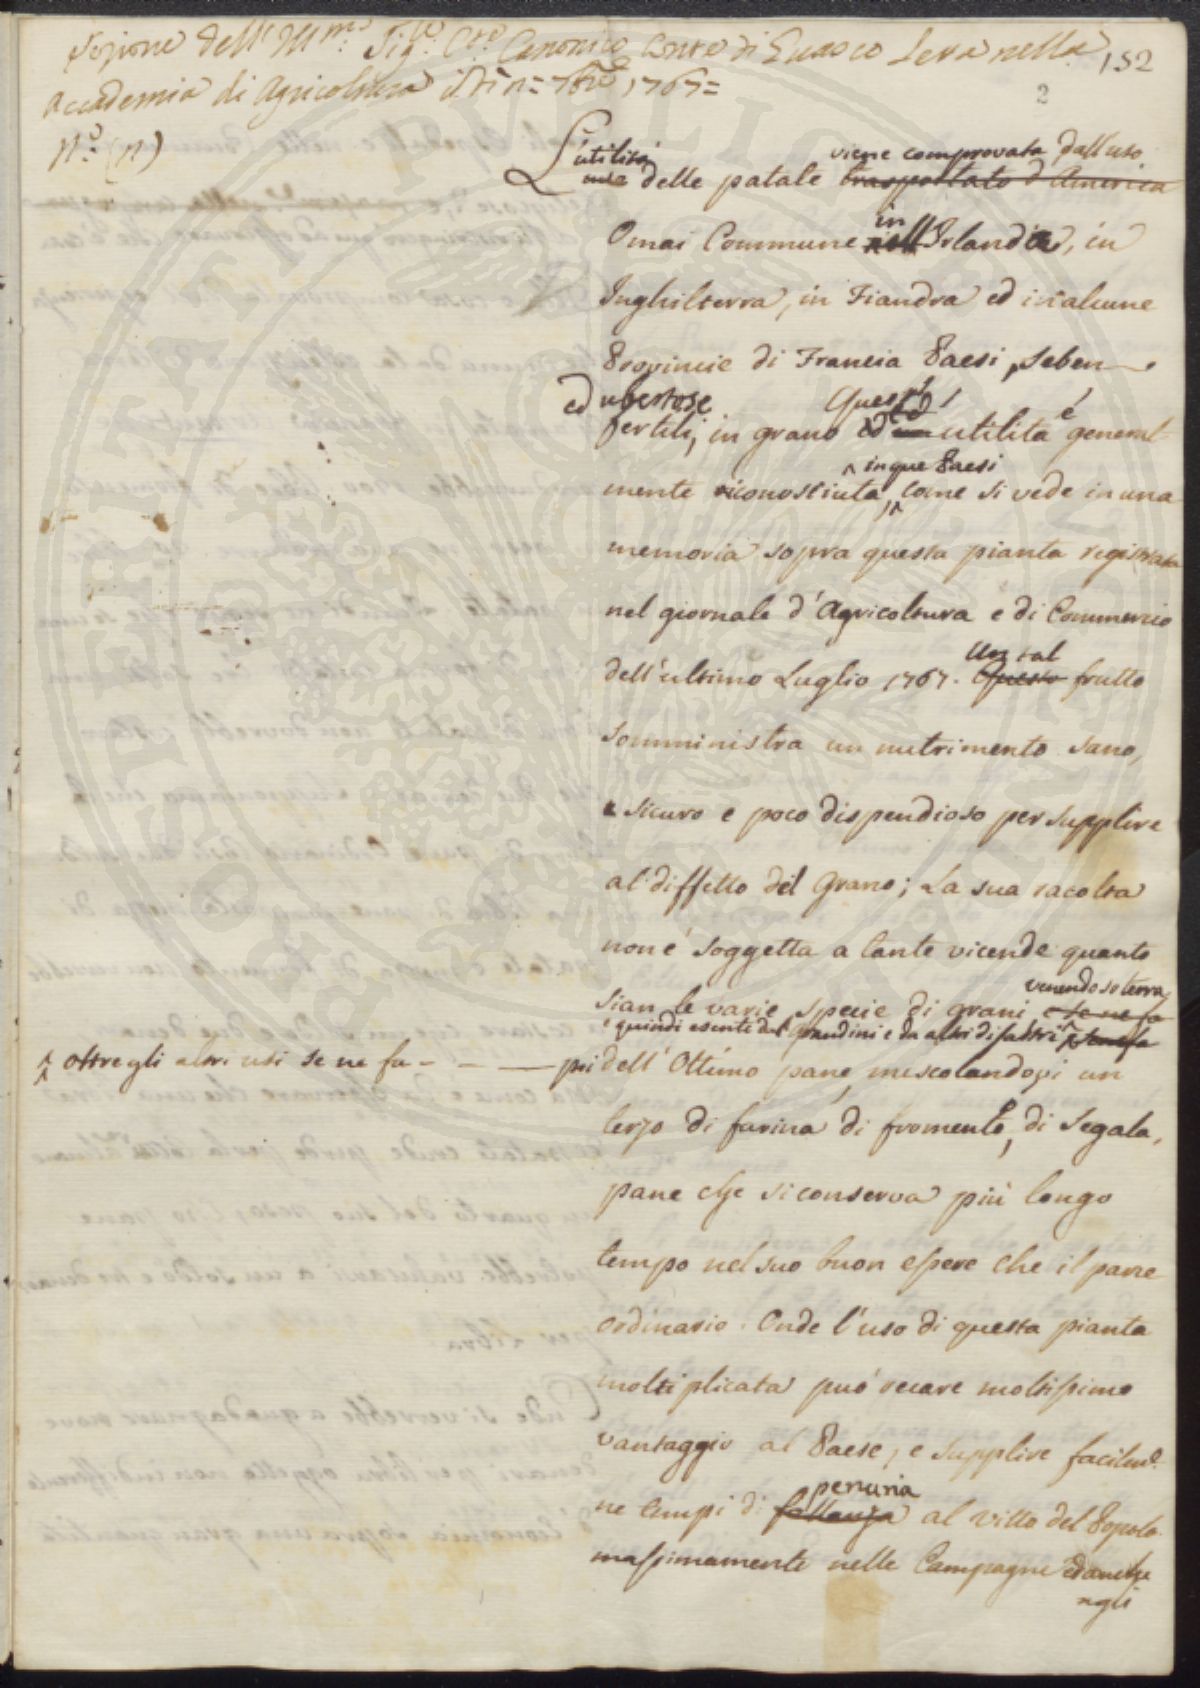 Lezione dell' Ill.mo Sig.re C.te Canonico Conte di Guaoco Letta nella 152
Accademia di Agricoltura il dì n = 7bre 1767 =
2
N.o (n)
L'utilità viene comprovata dall'uso
delle patate trasportato d'America
in
Omai Commune nell Irlanda, in
Inghilterra, in Fiandra ed in alcune
Provincie di Francia Paesi, seben
ed ubertose Questa
fertili, in grano ed utilità è general-
in que Paesi
mente riconosciuta, come si vede in una
memoria sopra questa pianta registrata
nel giornale d'Agricoltura e di Commercio
Un tal
dell'ultimo Luglio 1767. Questo frutto
somministra un nutrimento sano,
e sicuro e poco dispendioso per supplire
al diffetto del grano; La sua racolta
non é soggetta a tante vicende quanto
venendo soterra
sian le varie specie di grani e se ne fa
e quindi esente dal grandini e da altri disastri
oltre gli altri usi se ne fa - - — poi dell'Ottimo pane, mescolandovi un
terzo di farina di fromento, di Segala,
pane che si conserva più longo
tempo nel suo buon essere che il pane
ordinario. Onde l'uso di questa pianta
moltiplicata può recare moltissimo
vantaggio al Paese, e supplire facilm.e
penuria
ne tempi di fallanza al vitto del Popolo
massimamente nelle Campagne ed anche
negli